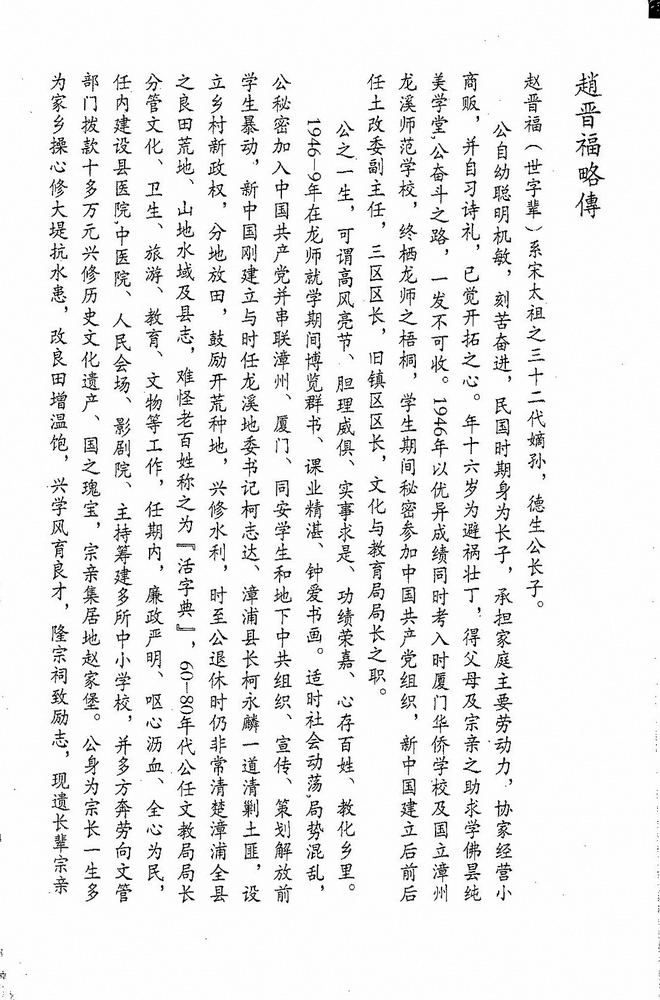 趙晋福略傳
赵晋福（世字辈）系宋太祖之三十二代嫡孙，德生公长子。
公自幼聪明机敏，刻苦奋进，民国时期身为长子，承担家庭主要劳动力，协家经营小
商贩，并自习诗礼，已觉开拓之心。年十六岁为避祸壮丁，得父母及宗亲之助求学佛昙纯
美学堂，公奋斗之路，一发不可收。1946年以优异成绩同时考入时厦门华侨学校及国立漳州
龙溪师范学校，终栖龙师之梧桐，学生期间秘密参加中国共产党组织，新中国建立后前后
任土改委副主任，三区区长，旧镇区区长，文化与教育局局长之职。
公之一生，可谓高风亮节、胆理威俱、实事求是、功绩荣嘉、心存百姓、教化乡里。
1946—9年在龙师就学期间博览群书、课业精湛、钟爱书画。适时社会动荡，局势混乱，
公秘密加入中国共产党并串联漳州、厦门、同安学生和地下中共组织、宣传、策划解放前
学生暴动，新中国刚建立与时任龙溪地委书记柯志达、漳浦县长柯永麟一道清剿土匪，设
立乡村新政权，分地放田，鼓励开荒种地，兴修水利，时至公退休时仍非常清楚漳浦全县
之良田荒地、山地水域及县志，难怪老百姓称之为『活字典』，60—80年代公任文教局局长
分管文化、卫生、旅游、教育、文物等工作，任期内，廉政严明、呕心沥血、全心为民，
任内建设县医院，中医院、人民会场、影剧院、主持筹建多所中小学校，并多方奔劳向文管
部门拨款十多万元兴修历史文化遗产、国之瑰宝，宗亲集居地赵家堡。公身为宗长一生多
为家乡操心修大堤抗水患，改良田增温饱，兴学风育良才，隆宗祠致励志，现遗长辈宗亲